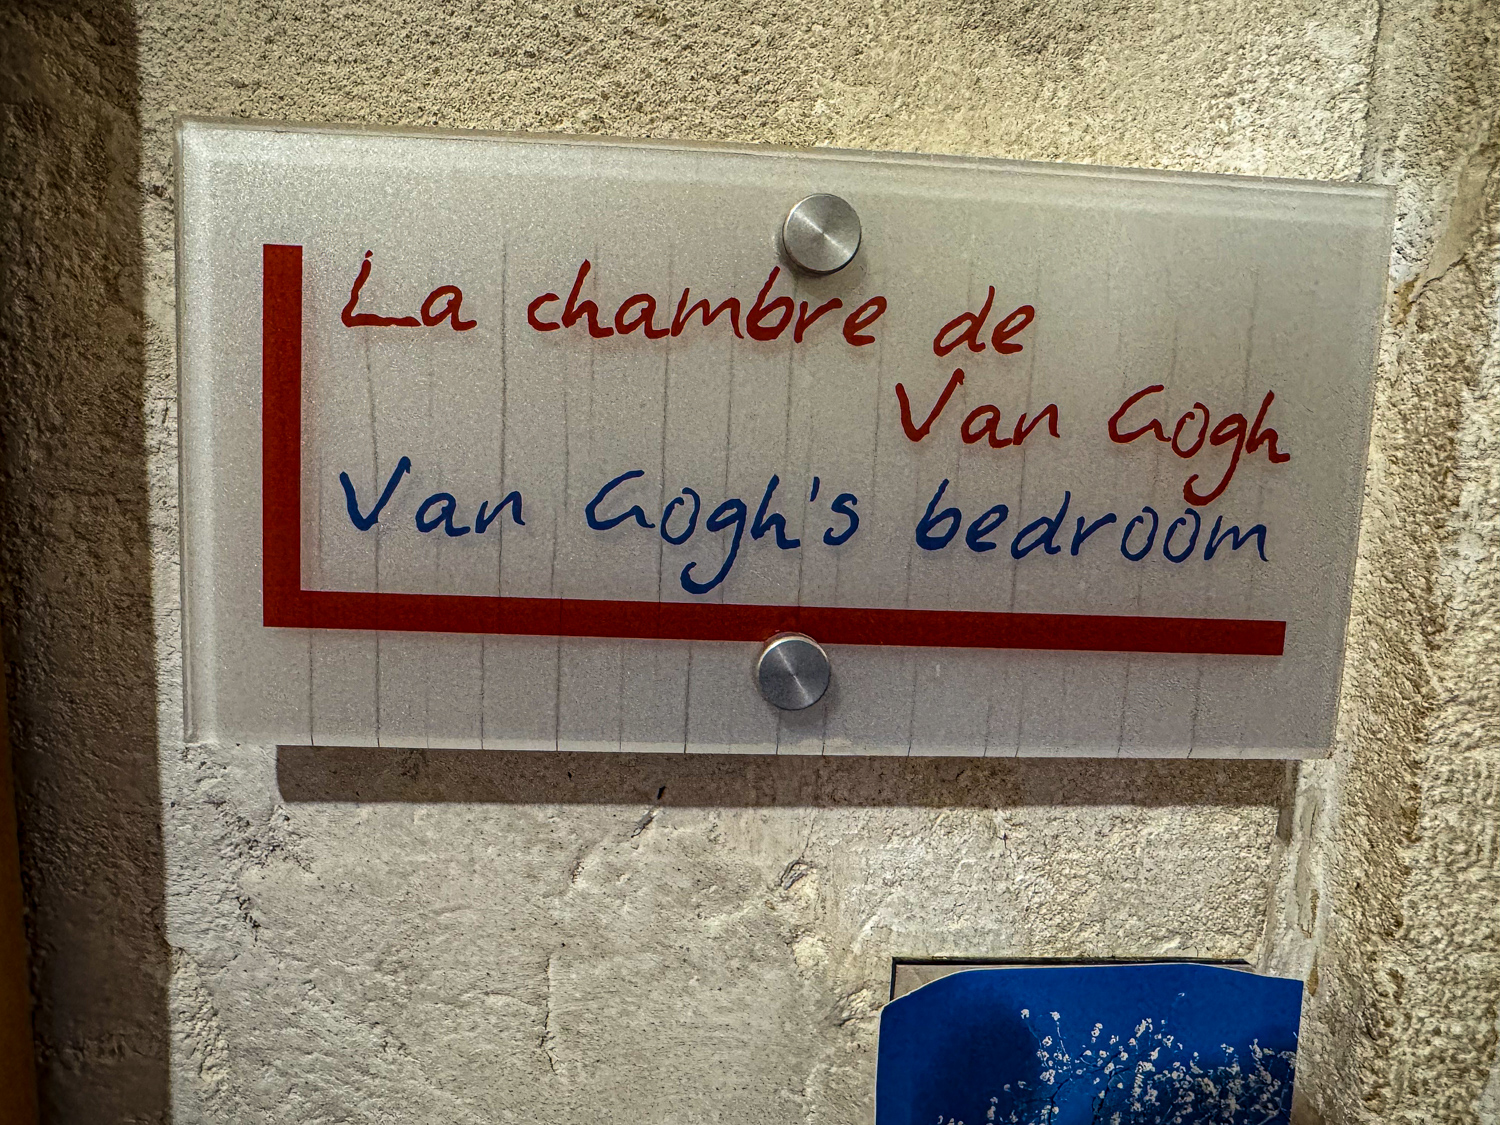 La chambre de
Van Gogh
Van Gogh's bedroom